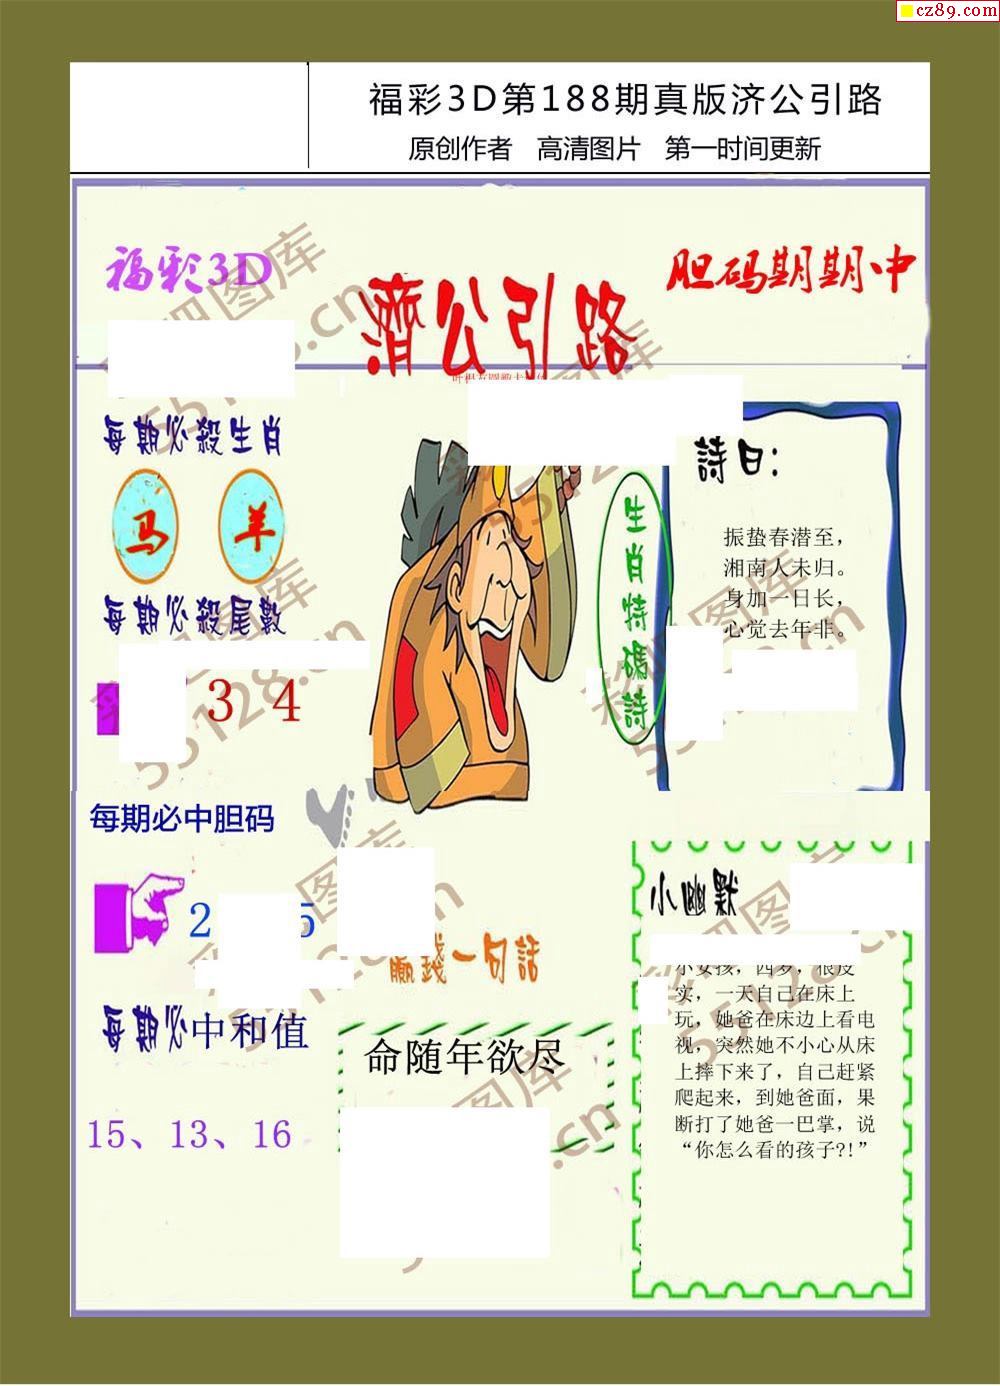 cz89.com
福彩3D第188期真版济公引路
原创作者 高清图片 第一时间更新
福彩3D
濟公引路
胆码期期中
每期必殺生肖
马 羊
每期必殺尾數
3 4
每期必中胆码
2 5
每期必中和值
15、13、16
生肖特碼詩
詩曰:
振蛰春潜至，
湘南人未归。
身加一日长，
心觉去年非。
贏錢一句話
命随年欲尽
小幽默
小女孩，四岁，很皮
实，一天自己在床上
玩，她爸在床边上看电
视，突然她不小心从床
上摔下来了，自己赶紧
爬起来，到她爸面，果
断打了她爸一巴掌，说
“你怎么看的孩子?!”